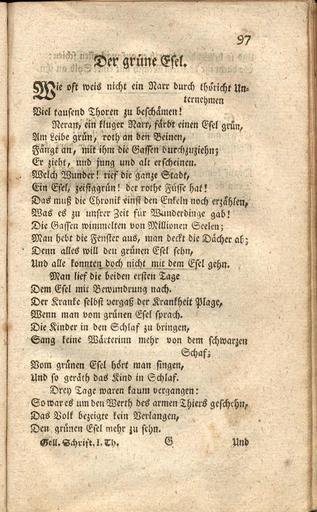 97
Der grüne Esel.
Wie oft weis nicht ein Narr durch thöricht Un-
ternehmen
Viel tausend Thoren zu beschämen!
Neran, ein kluger Narr, färbt einen Esel grün,
Am Leibe grün, roth an den Beinen,
Fängt an, mit ihm die Gassen durchzuziehn;
Er zieht, und jung und alt erscheinen.
Welch Wunder! rief die ganze Stadt,
Ein Esel, zeisiggrün! der rothe Füsse hat!
Das muß die Chronik einst den Enkeln noch erzählen,
Was es zu unsrer Zeit für Wunderdinge gab!
Die Gassen wimmelten von Millionen Seelen;
Man hebt die Fenster aus, man deckt die Dächer ab;
Denn alles will den grünen Esel sehn,
Und alle konnten doch nicht mit dem Esel gehn.
Man lief die beiden ersten Tage
Dem Esel mit Bewundrung nach.
Der Kranke selbst vergaß der Krankheit Plage,
Wenn man vom grünen Esel sprach.
Die Kinder in den Schlaf zu bringen,
Sang keine Wärterinn mehr von dem schwarzen
Schaf;
Vom grünen Esel hört man singen,
Und so geräth das Kind in Schlaf.
Drey Tage waren kaum vergangen:
So war es um den Werth des armen Thiers geschehn,
Das Volk bezeigte kein Verlangen,
Den grünen Esel mehr zu sehn.
Gell. Schrift. I. Th. G Und